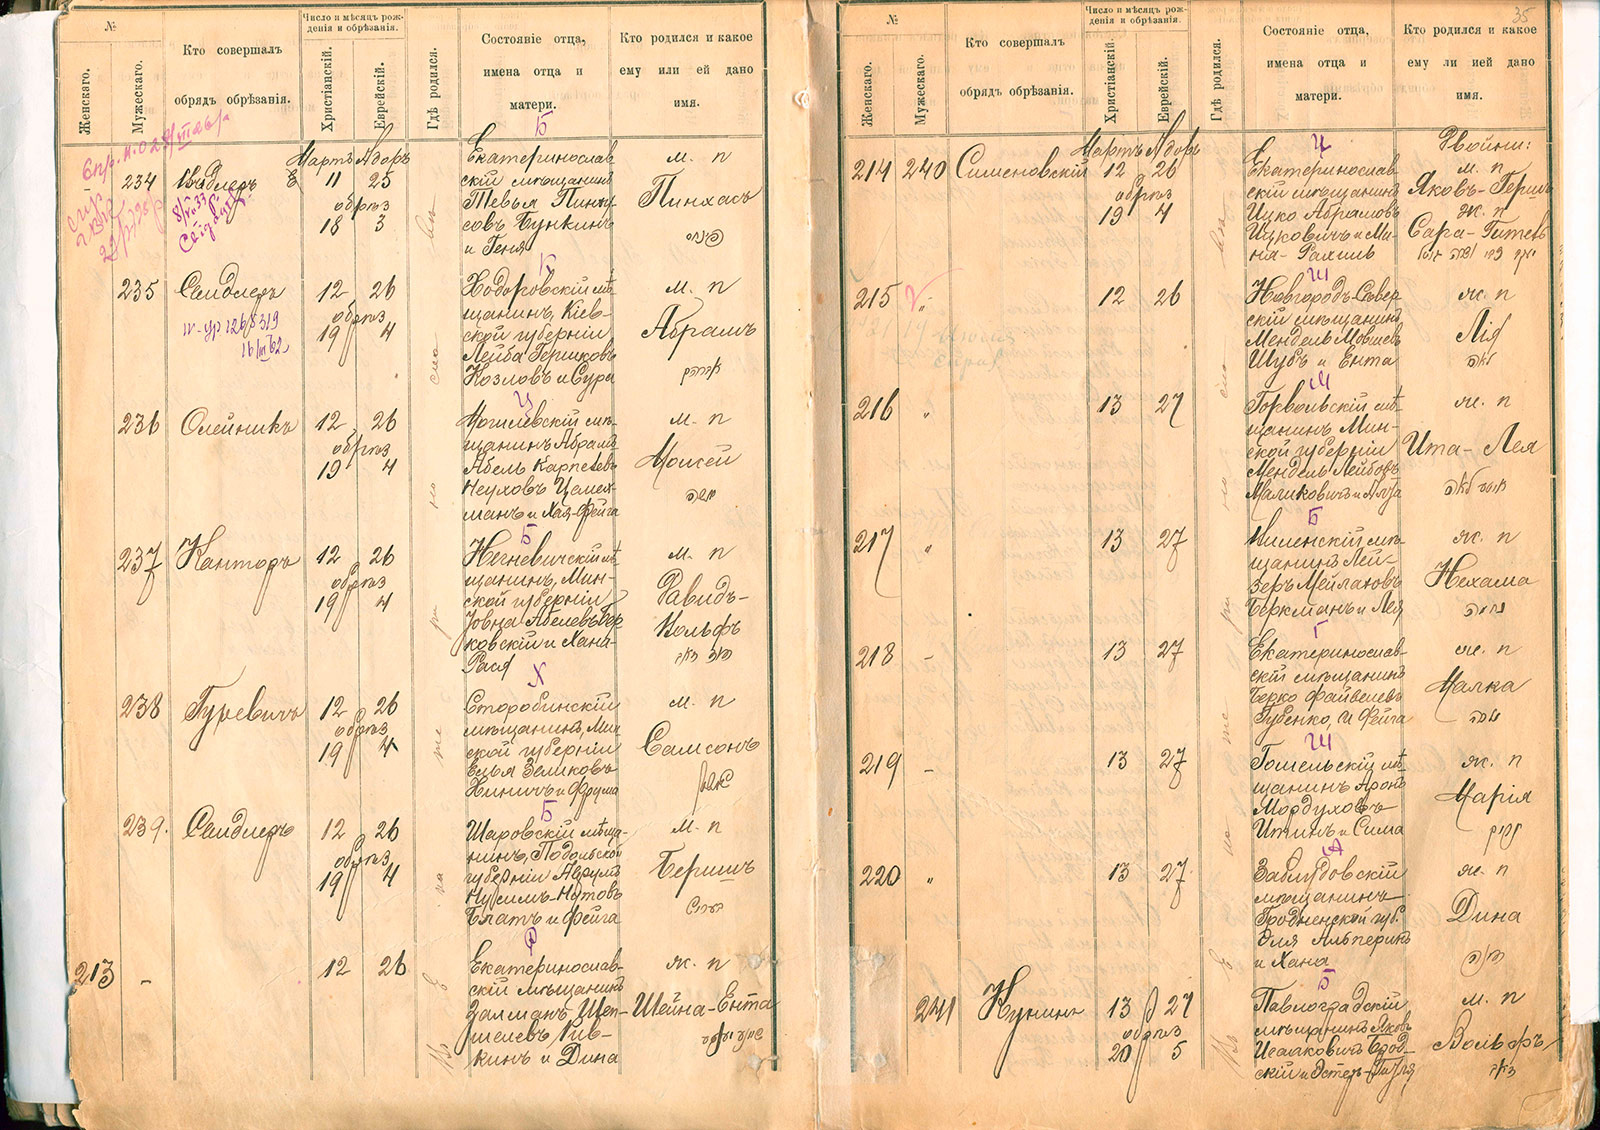 №
Женскаго.
Мужескаго.
Кто совершалъ
обрядъ обрѣзанія.
Число и мѣсяцъ рож-
денія и обрѣзанія.
Христіанскій.
Еврейскій.
Гдѣ родился.
Состояніе отца,
имена отца и
матери.
Кто родился и какое
ему или ей дано
имя.
Б
234
Мартъ Адаръ
11 25
обрѣз
18 3
Екатеринослав
скій мѣщанинъ
Тевья Пинху-
совъ Бункинъ
и Геня
м. п
Пинхасъ
К
235 Сандлеръ
12 26
обрѣз
19 4
Ходорковскій мѣ-
щанинъ, Кіев-
ской губерніи
Лейба Гершковъ
Козловъ и Сура
м. п
Абрамъ
אברהם
Ц
236 Олейникъ
12 26
обрѣз
19 4
Могилевскій мѣ-
щанинъ Абрамъ
Абель
Цемех-
манъ и Хая-Фейга
м. п
Моисей
משה
Б
237 Канторъ
12 26
обрѣз
19 4
Негневичскій мѣ-
щанинъ, Мин-
ской губерніи
Іовна Абелевъ Бер
ковскій и Хана-
Рася
м. п
Давидъ-
Вольфъ
דוד זאב
Х
238 Гуревичъ
12 26
обрѣз
19 4
Старобинскій
мѣщанинъ, Мин
ской губерніи
Зеликовъ
Хиничъ и Фрума
м. п
Самсонъ
Б
239. Сандлеръ
12 26
обрѣз
19 4
Шаровскій мѣща-
нинъ, Подольской
губерніи Аврумъ
Нусимъ-Нутовъ
Блатъ и Фейга
м. п
Бершъ
Р
213 -
12 26
Екатеринослав-
скій мѣщанинъ
Залманъ Шеп-
шелевъ Рив-
кинъ и Дина
ж. п
Шейна-Ента
№
Женскаго.
Мужескаго.
Кто совершалъ
обрядъ обрѣзанія.
Число и мѣсяцъ рож-
денія и обрѣзанія.
Христіанскій.
Еврейскій.
Гдѣ родился.
Состояніе отца,
имена отца и
матери.
Кто родился и какое
ему ли ией дано
имя.
35
Ц
214 240 Сименовскій
Мартъ Адаръ
12 26
обрѣз
19 4
Екатеринослав-
скій мѣщанинъ
Ицко Абрамовъ
Ицковичъ и Ми-
на-Рахиль
Двойни:
м. п
Яковъ-Гершъ
ж. п
Сара-Гитель
Ш
215 "
12 26
Новгородъ-Сѣвер-
скій мѣщанинъ
Мендель Мовшевъ
Шубъ и Ента
ж. п
Лія
לאה
М
216 "
13 27
Горвольскій мѣ-
щанинъ Мин-
ской губерніи
Мендель Лейбовъ
ж. п
Ита-Лея
Б
217 "
13 27
Виленскій мѣ-
щанинъ Лей-
зеръ Мейлаховъ
Беркманъ и Лея
ж. п
Нехама
נחמה
Г
218 -
13 27
Екатеринослав-
скій мѣщанинъ
Берко Файвелевъ
Губенко, и Фейга
ж. п
Малка
מלכה
Ш
219 -
13 27
Гомельскій мѣ-
щанинъ Аронъ
Мордуховъ
и Сима
ж. п
Марія
מרים
А
220 "
13 27
Заблудовскій
мѣщанинъ
Гродненской губ.
Эля Альперинъ
и Хана
ж. п
Дина
דינה
Б
241 Кунинъ
13 27
обрѣз
20 5
Павлоградскій
мѣщанинъ Яковъ
Исааковичъ Брод-
скій и Эстеръ-
м. п
Вольфъ
זאב